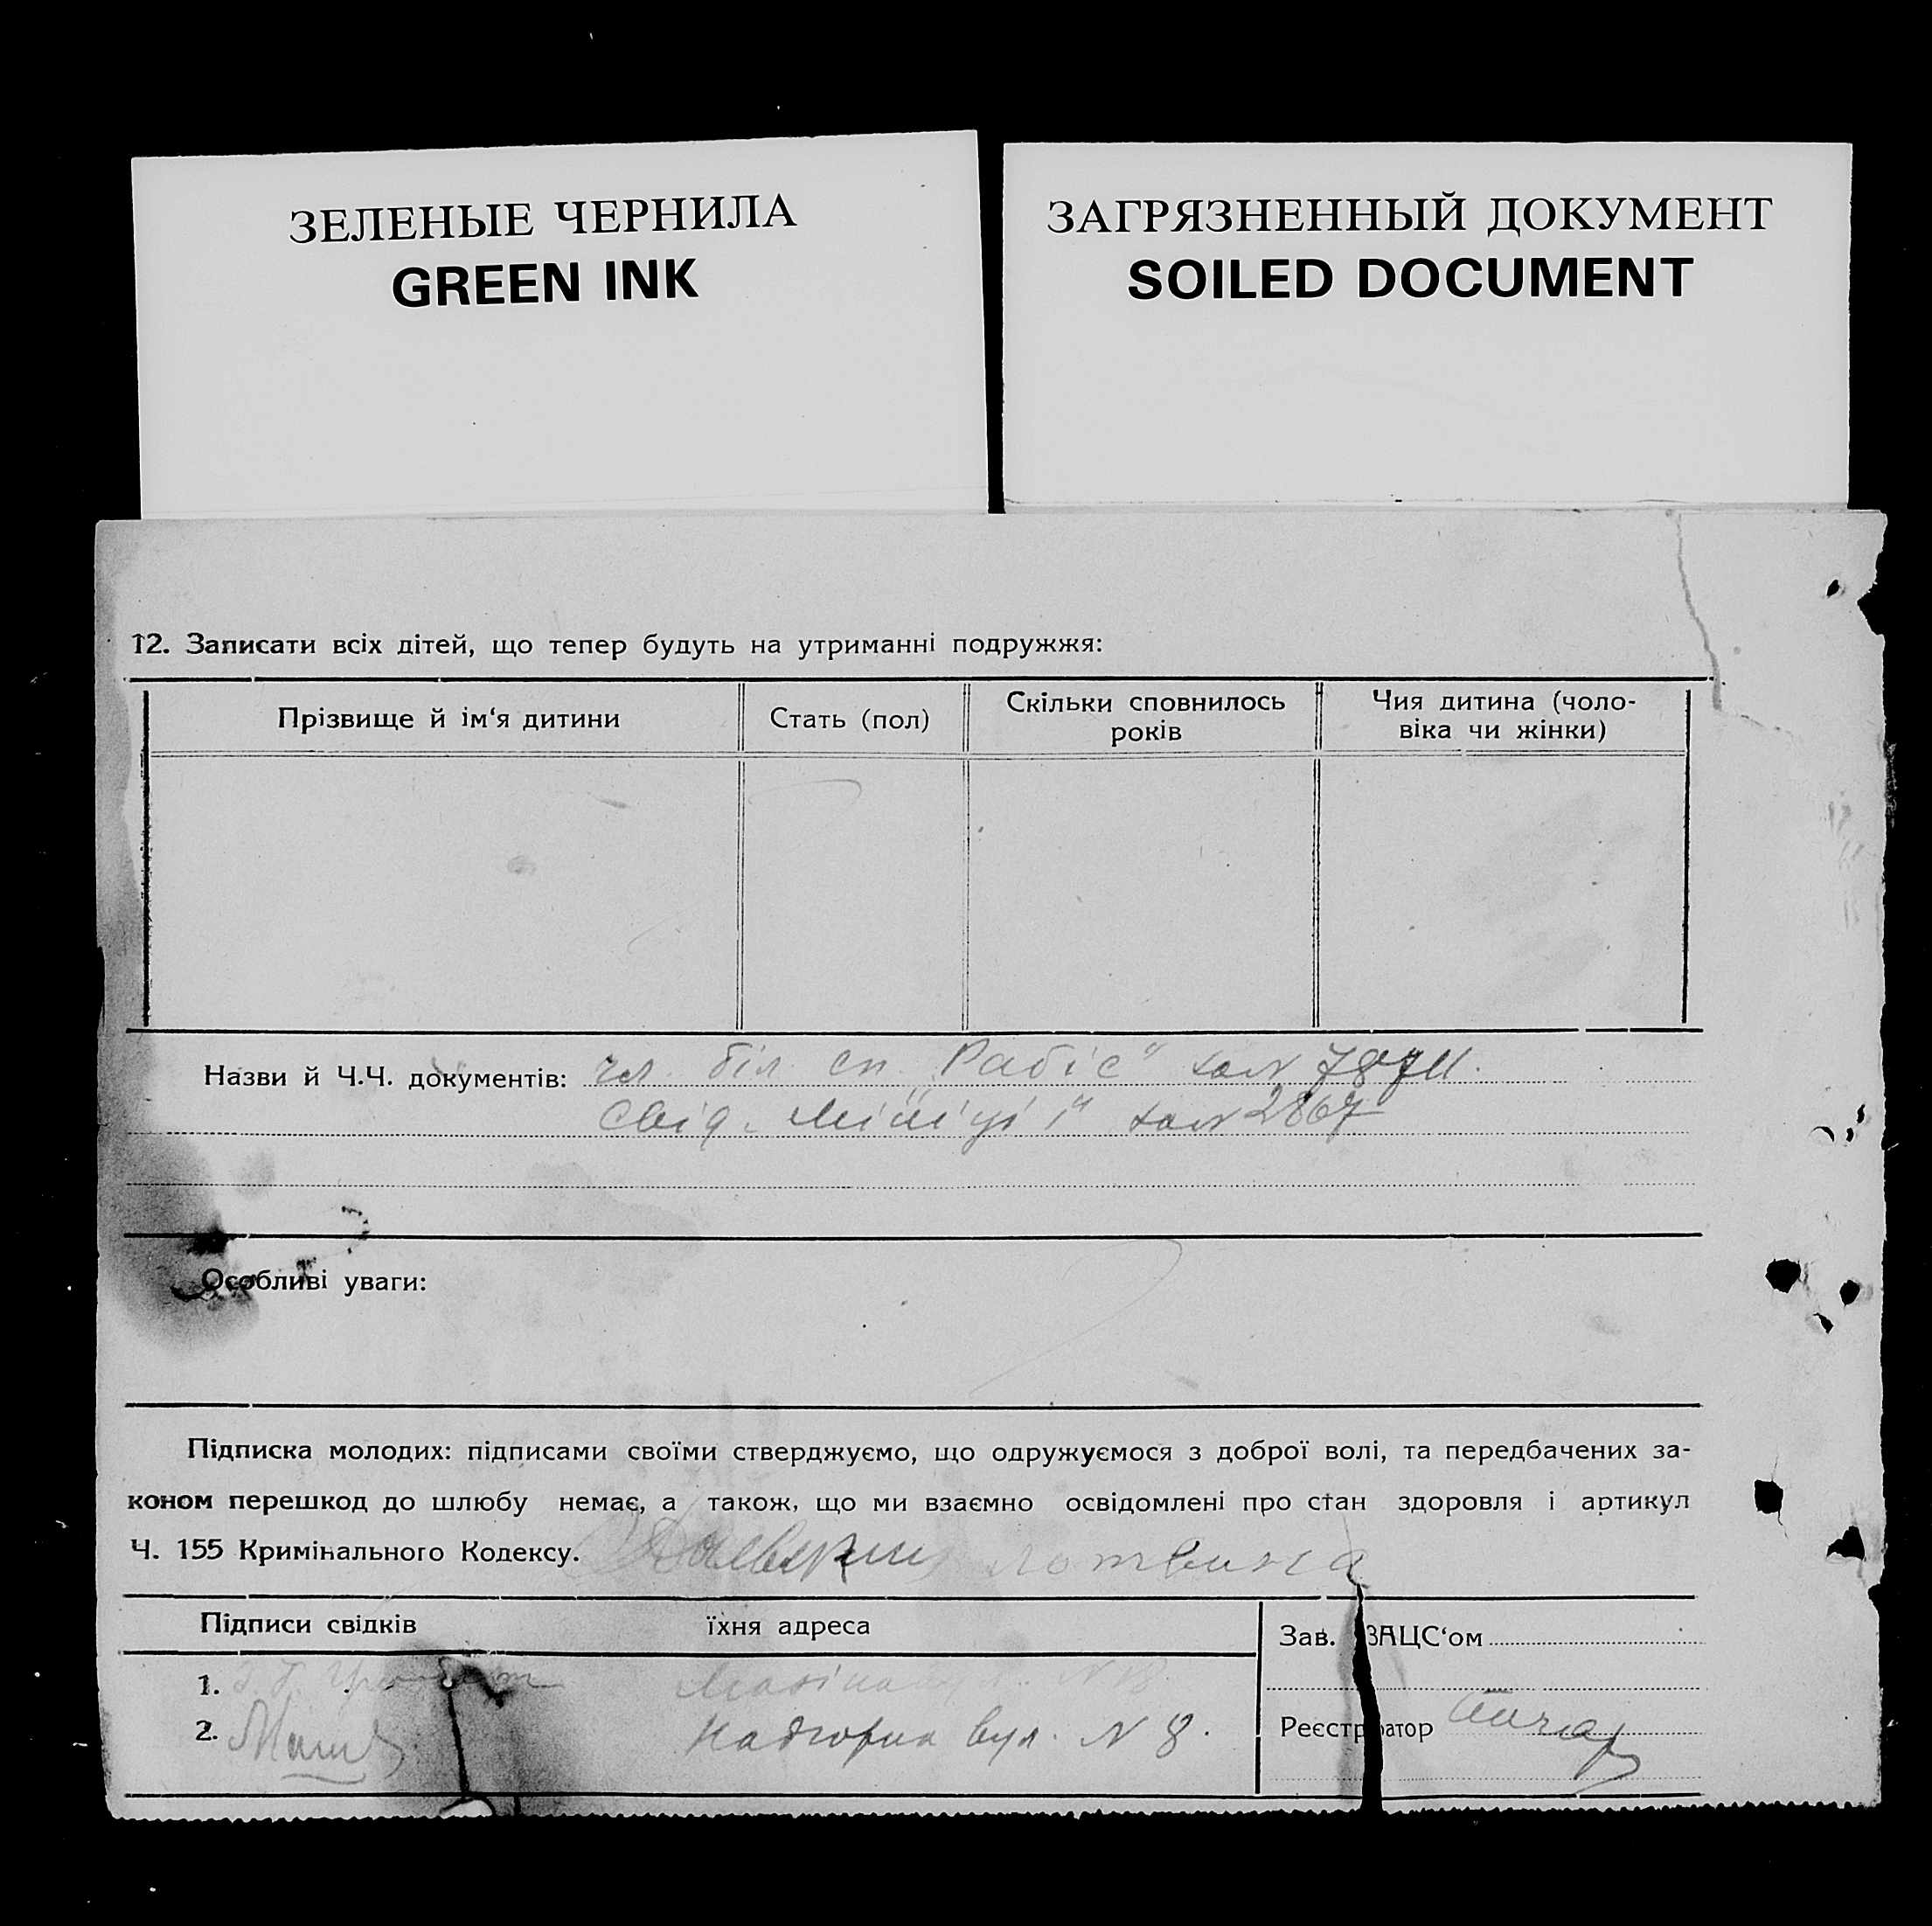 ЗЕЛЕНЫЕ ЧЕРНИЛА
GREEN INK
ЗАГРЯЗНЕННЫЙ ДОКУМЕНТ
SOILED DOCUMENT
12. Записати всіх дітей, що тепер будуть на утриманні подружжя:
Прізвище й ім‘я дитини
Стать (пол)
Скільки сповнилось
років
Чия дитина (чоло-
віка чи жінки)
Назви й Ч.Ч. документів: чл. біл сп „Рабіс“
свід. Міліції 2867
Особливі уваги:
Підписка молодих: підписами своїми стверджуємо, що одружуємося з доброї волі, та передбачених за-
коном перешкод до шлюбу немає, а також, що ми взаємно освідомлені про стан здоровля і артикул
Ч. 155 Кримінального Кодексу.
Підписи свідків
їхня адреса
Зав. ЗАЦС‘ом
1.
2. Надгорна вул. N 8.
Реєстратор